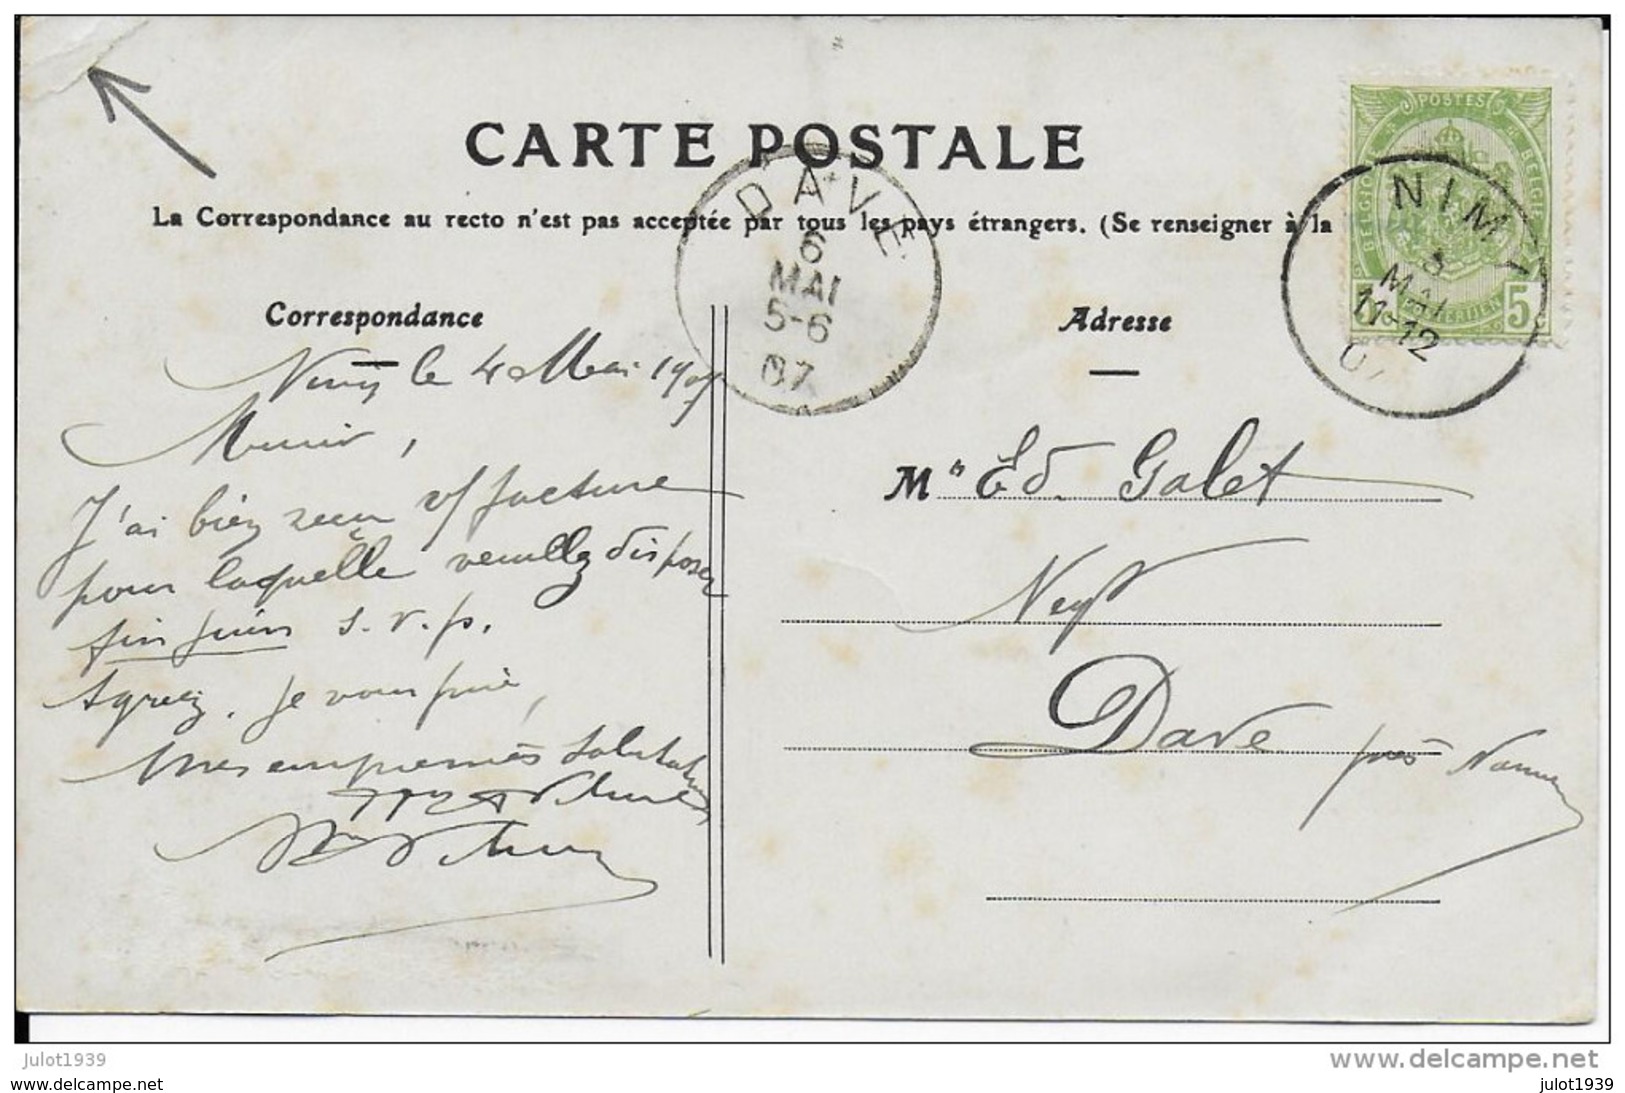 CARTE POSTALE
La Correspondance au recto n'est pas acceptée par tous les pays étrangers. (Se renseigner à la
POSTES
BELGIQUE BELGIE
5 5
NIMY
MAI
11-12
07
DAVE
6
MAI
5-6
07
Correspondance
Nimy le 4 Mai 1907
Monsieur,
J'ai bien reçu v/ facture
pour laquelle veuillez disposer
fin juin s.v.p.
Agréez, je vous prie,
mes empressées salutations
Adresse
Mr Ed. Galet
Nég
Dave près Namur
julot1939
www.delcampe.net
www.delcampe.com
julot1939